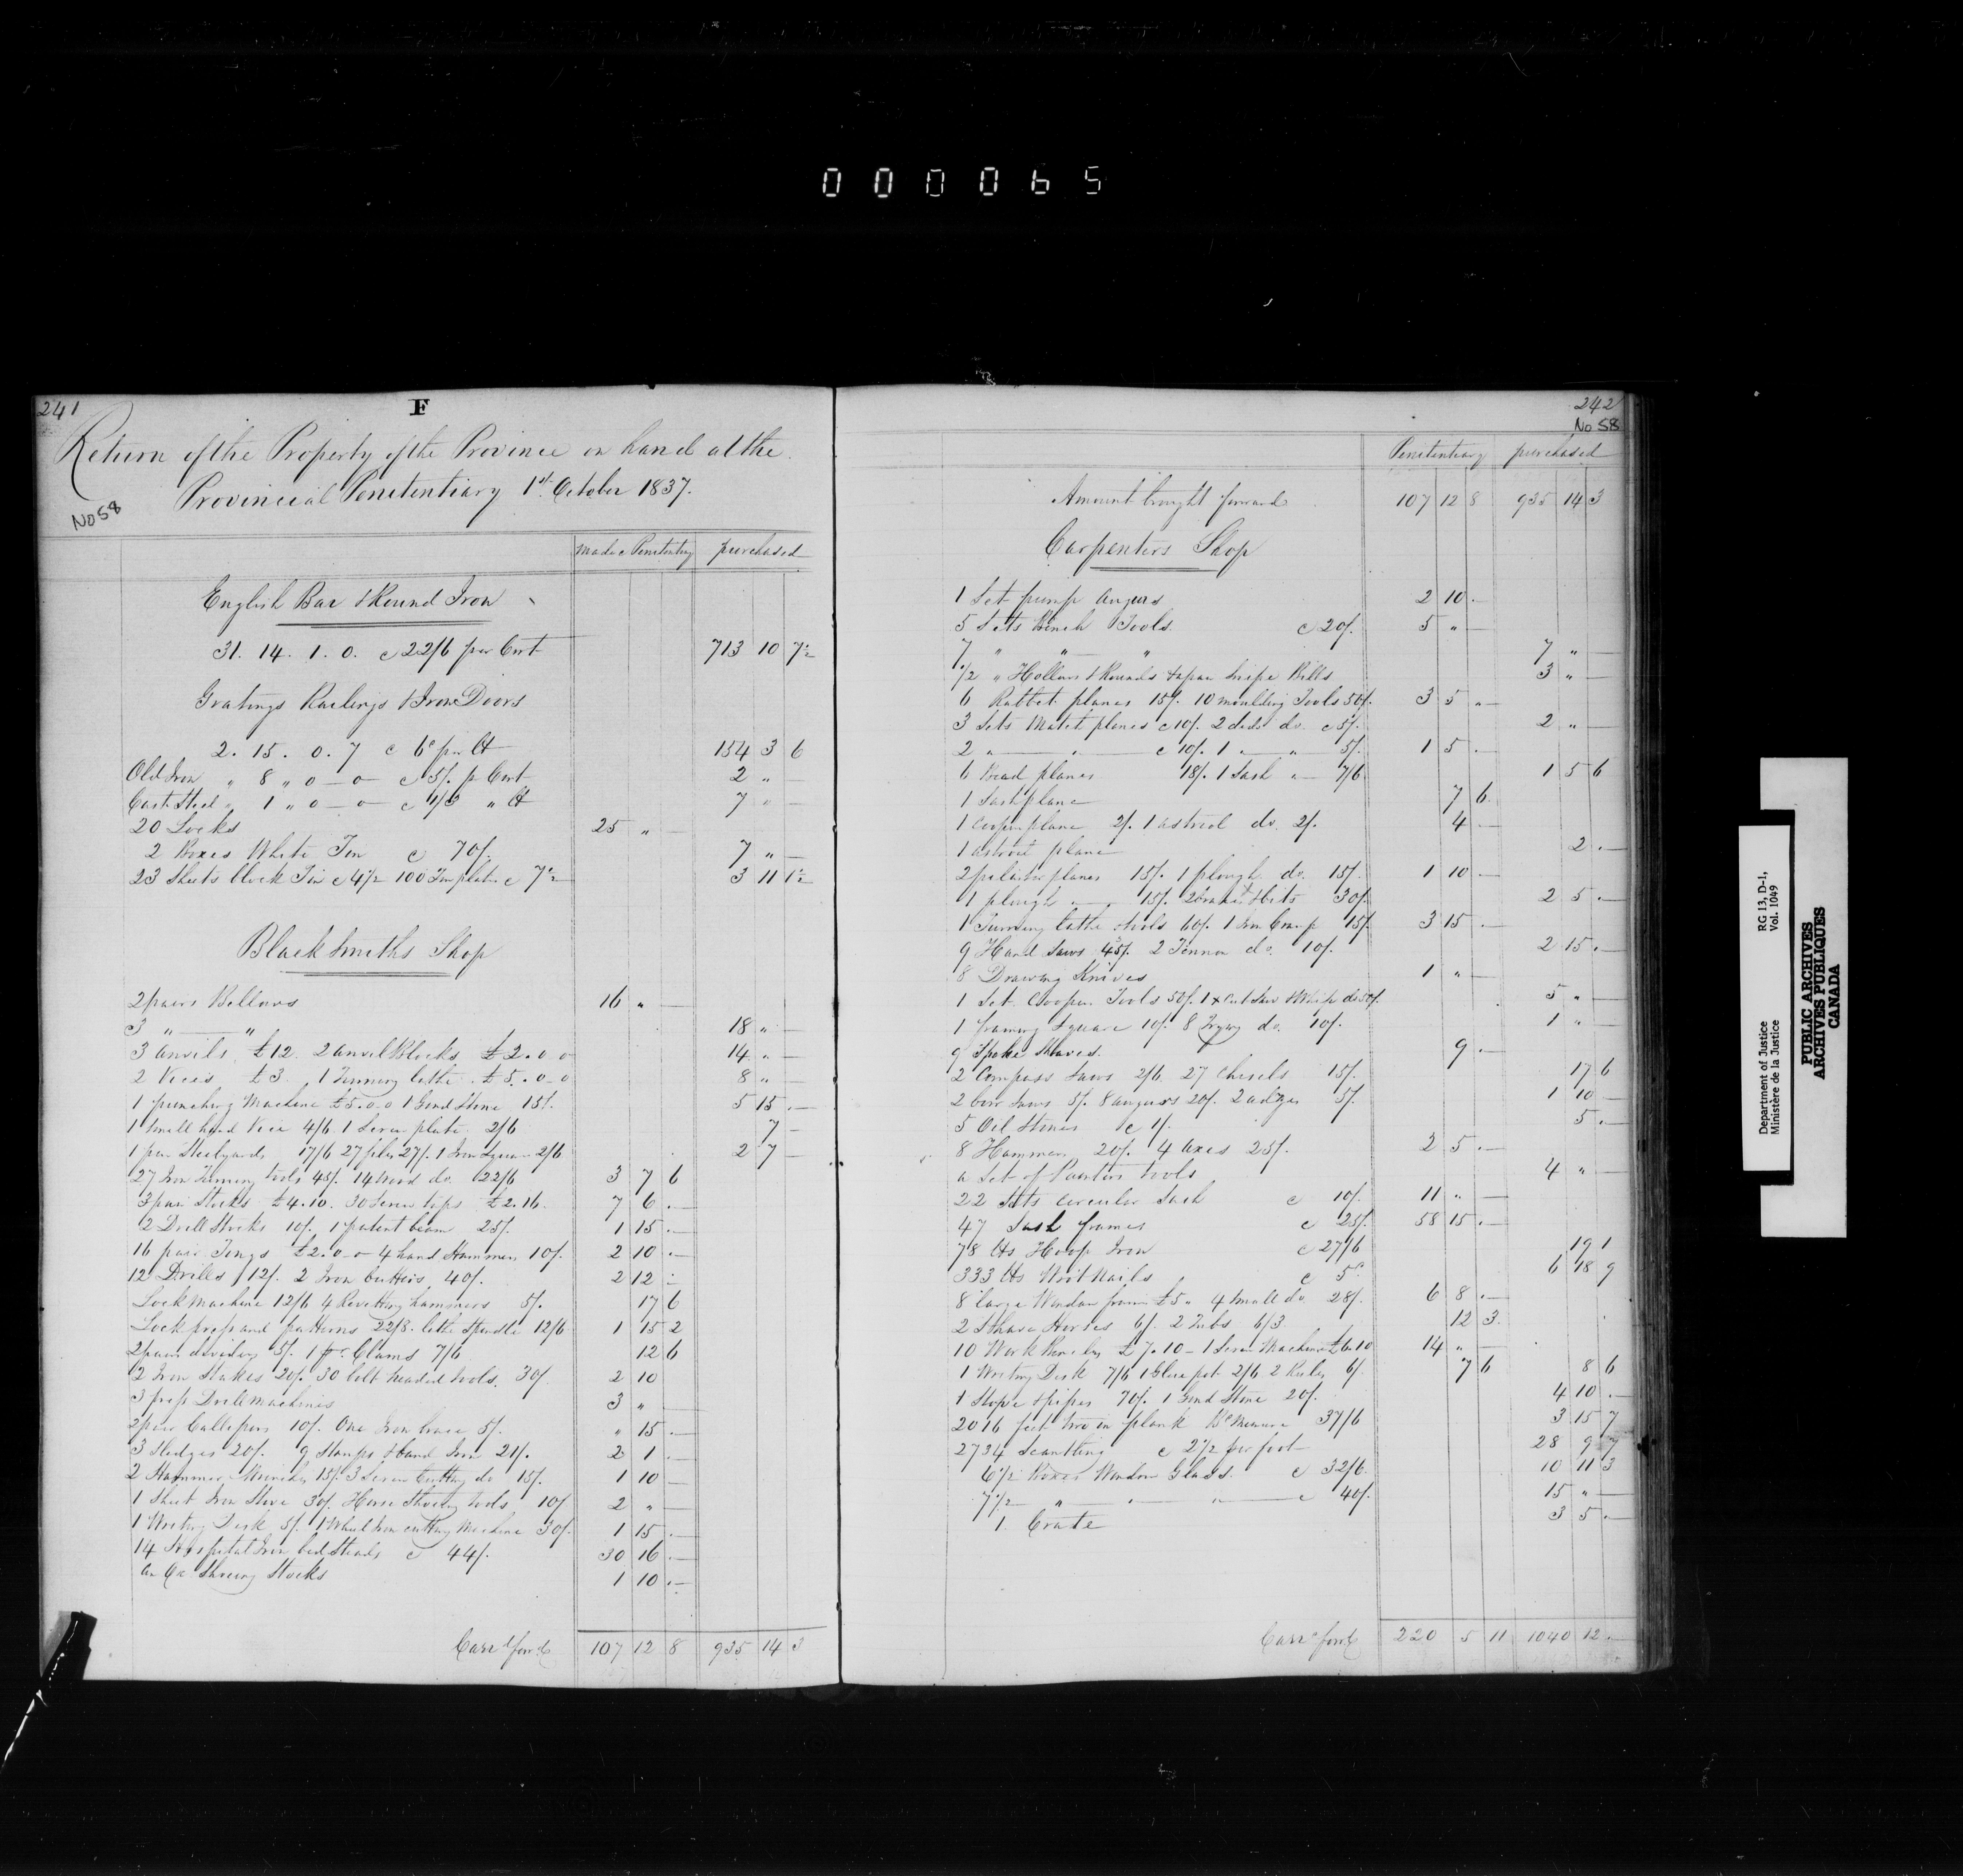 000065
241
F
Return of the Property of the Province on hand at the
Provincial Penitentiary 1st October 1837.
No 58
made @ Penitentiary purchased
English Bar & Round Iron
31. 14. 1. 0. @ 22/6 per Cwt 713 10 7½
Gratings Railings & Iron Doors
2. 15. 0. 7 @ 6d per lb 154 3 6
Old Iron " 8 " 0 - 0 @ 5/. p Cwt 2 " -
Cast Steel " 1 " 0 - 0 @ 1/3 " lb 7 " -
20 Locks 25 " -
2 Boxes White Tin @ 70/. 7 " -
23 Sheets block Tin @ 4½ 100 Tin plate @ 7½ 3 11 1½
Black Smiths Shop
2 pairs Bellows 16 " -
3 " " 18 " -
3 anvils £12. 2 anvil Blocks £2.0 0 14 " -
2 Vices £3. 1 Turning lathe £5.0-0 8 " -
1 punching Machine £5.0.0 1 Grind Stone 15/. 5 15 . -
1 Small hand Vice 4/6 1 Screw plate 2/6 7 -
1 pair Steelyards 17/6 27 files 27/. 1 Iron Square 2/6 2 7 -
27 Iron Turning tools 45/. 14 Wood do. 22/6 3 7 6
3 pair Stocks £4.10. 30 Screw taps £2.16. 7 6 . -
2 Drill Stocks 10/. 1 patent beam 25/. 1 15 . -
16 pair Tongs £2.0-0 4 hand Hammers 10/. 2 10 . -
12 Drills 12/. 2 Iron Cutters 40/. 2 12 -
Lock Machine 12/6 4 Revetting hammers 5/. 17 6
Lock press and patterns 22/8. lathe Spindle 12/6 1 15 2
2 pair dividers 5/. 1 pr. Clams 7/6 12 6
2 Iron Stakes 20/. 30 bolt headed tools. 30/. 2 10
3 press Drill Machines 3 " -
2 pair Callipers 10/. One Iron brace 5/. " 15 . -
3 Sledges 20/. 9 Stamps & hand Iron 21/. 2 1 . -
2 Hammer 15/. 3 Screw Cutting do 15/. 1 10 -
1 Sheet Iron Stove 30/. Horse Shoeing tools 10/ 2 " -
1 Writing Desk 5/. 1 Wheel Iron cutting Machine 30/. 1 15 . -
14 Hospital Iron bed Steads @ 44/. 30 16 . -
an Ox Shoeing Stocks 1 10 . -
Carrd forwd 107 12 8 935 14 3
242
No 58
Penitentiary purchased
Amount brought forward 107 12 8 935 14 3
Carpenters Shop
1 Set pump augurs 2 10 . -
5 Sets Bench Tools. @ 20/. 5 " -
7 " " " 7 " -
½ " Hollows & Rounds & a pair Snipe Bills 3 " -
6 Rabbet planes 15/. 10 moulding Tools 50/. 3 5 " -
3 Sets Match planes @ 10/. 2 dado do. @ 5/. 2 " -
2 " " @ 10/. 1 " " 5/. 1 5 . -
6 Bead planes 18/. 1 Sash " 7/6 1 5 6
1 Sash plane 7 6.
1 plane 2/. 1 astricl do. 2/. 4 -
1 plane 2 . -
2 planes 15/. 1 plough do. 15/. 1 10 -
1 plough " 15/. 2 braces & bits 30/. 2 5 . -
1 Turning lathe & tools 60/. 1 Iron Cramp 15/. 3 15 . -
9 Hand Saws 45/. 2 Tennon do. 10/. 2 15 . -
8 Drawing Knives 1 " -
1 Set Cooper Tools 50/. 1 x Cut Saw & Whip do 50/. 5 " -
1 framing Square 10/. 8 Trying do. 10/. 1 " -
9 Spoke Shaves. 9 . -
2 Compass Saws 2/6 27 Chisels 15/. 17 6
2 bow Saws 5/. 8 augurs 20/. 2 adzes 5/. 1 10 -
5 Oil Stones @ 1/. 5 . -
8 Hammers 20/. 4 axes 25/. 2 5 . -
a Set of Painters tools 4 " -
22 Sets circular Sash @ 10/. 11 " -
47 Sash frames @ 25/. 58 15 . -
78 lbs Hoop Iron @ 27/6 19 1
333 lbs Wrot Nails @ 5d 6 18 9
8 large Window frames £5 " 4 Small do. 28/. 6 8 . -
2 Horses 6/. 2 Tubs 6/3 12 3.
10 Work Benches £7.10 - 1 Screw Machine £6.10 14 " -
1 Writing Desk 7/6 1 Glue pot 2/6 2 Rules 6/. 7 6 8 6
1 Stove & pipes 70/. 1 Grind Stone 20/. 4 10 . -
2016 feet two in plank Bd Measure 37/6 3 15 7
2734 Scantling @ 2½ per foot 28 9 7
6½ Boxes Window Glass. @ 32/6 10 11 3
7½ " " " @ 40/. 15 " -
1. Crate 3 5 . -
Carrd forwd 220 5 11 1040 12 . -
Department of Justice
Ministère de la Justice
RG 13, D-1,
Vol. 1049
PUBLIC ARCHIVES
ARCHIVES PUBLIQUES
CANADA